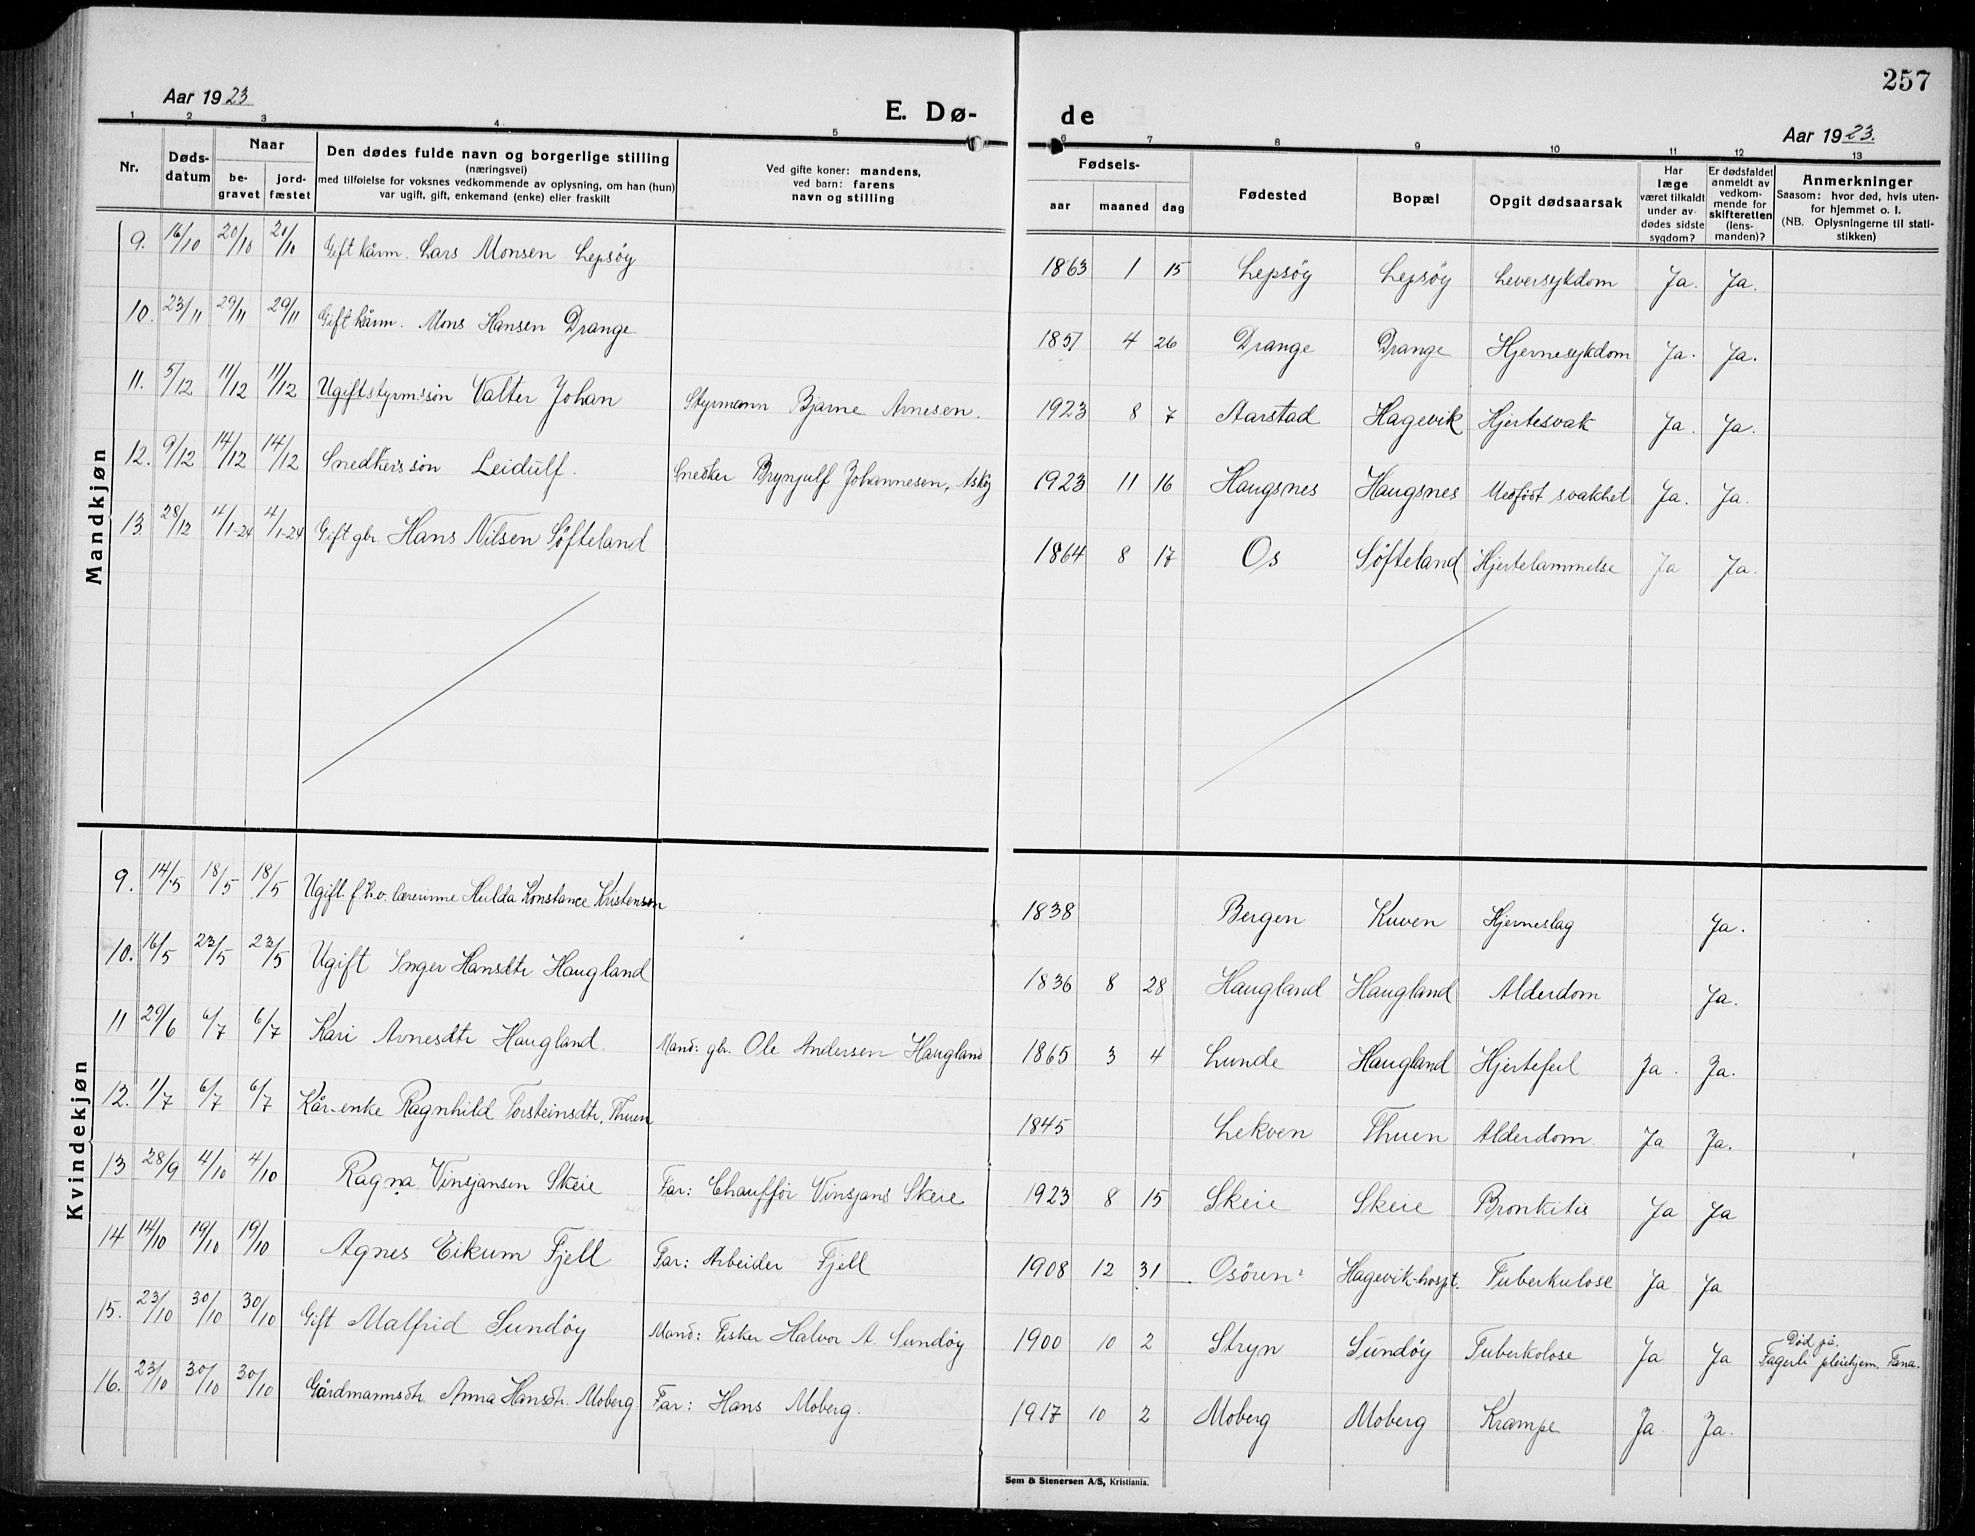 257
Aar 1923
E. Dø-
de
Aar 1923.
1 2 3 4 5 6 7 8 9 10 11 12 13
Nr.
Døds-
datum
Naar
be-
gravet
jord-
fæstet
Den dødes fulde navn og borgerlige stilling
(næringsvei)
med tilføielse for voksnes vedkommende av oplysning, om han (hun)
var ugift, gift, enkemand (enke) eller fraskilt
Ved gifte koner: mandens,
ved barn: farens
navn og stilling
Fødsels-
aar maaned dag
Fødested
Bopæl
Opgit dødsaarsak
Har
læge
været tilkaldt
under av-
dødes sidste
sygdom?
Er dødsfaldet
anmeldt av
vedkom-
mende for
skifteretten
(lens-
manden)?
Anmerkninger
Saasom: hvor død, hvis uten-
for hjemmet o. l.
(NB. Oplysningerne til stati-
stikken)
Mandkjøn
9. 16/10 20/10 20/10 Gift kårm. Lars Monsen Lepsöy 1863 1 15 Lepsöy Lepsöy Leversykdom Ja. Ja.
10. 23/11 29/11 29/11 Gift kårm. Mons Hansen Drange 1851 4 26 Drange Drange Hjernesykdom Ja. Ja.
11. 5/12 11/12 11/12 Ugift styrm.sön Valter Johan Styrmann Bjarne Arnesen. 1923 8 7 Aarstad Hagevik Hjertesvak Ja. Ja.
12. 9/12 14/12 14/12 Snedkerssön Leidulf. Snedker Brynjulf Johannesen, Asköy 1923 11 16 Haugsnes Haugsnes Medfödt svakhet Ja. Ja.
13. 28/12 4/1-24 4/1-24 Gift gbr. Hans Nilsen Söfteland 1864 8 17 Os Söfteland Hjertelammelse Ja Ja.
Kvindekjøn
9. 14/5 18/5 18/5 Ugift. fhv. lærerinne Hulda Konstance Kristensen 1838 Bergen Kuven Hjerneslag Ja.
10. 16/5 23/5 23/5 Ugift Inger Hansdtr Haugland 1836 8 28 Haugland Haugland Alderdom Ja.
11 29/6 6/7 6/7 Kari Arnesdtr Haugland. Mand: gbr. Ole Andersen Haugland 1865 3 4 Lunde Haugland Hjertefeil Ja. Ja.
12. 1/7 6/7 6/7 Kår-enke Ragnhild Torsteinsdtr. Thuen 1845 Lekven Thuen Alderdom. Ja Ja.
13 28/9 4/10 4/10 Ragna Vinsjansen Skeie Far: Chaufför Vinsjans Skeie 1923 8 15 Skeie Skeie Bronkitis Ja Ja
14 14/10 19/10 19/10 Agnes Eikum Fjell Far: Arbeider Fjell 1908 12 31 Osören Hagevik-hospt. Tuberkulose Ja Ja
15. 23/10 30/10 30/10 Gift Malfrid Sundöy Mand: Fisker Halvor A. Sundöy 1900 10 2 Stryn Sundöy Tuberkolose Ja Ja Död på Fagerli pleiehjem. Fana.
16. 23/10 30/10 30/10 Gårdmannsdtr. Anna Hansdtr. Moberg Far: Hans Moberg. 1917 10 2 Moberg Moberg Krampe Ja. Ja.
Sem & Stenersen A/S, Kristiania.